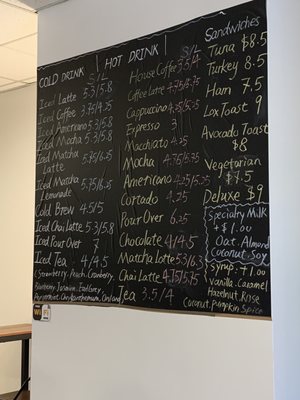 COLD DRINK S/L
Iced Latte 5.3/5.8
Iced Coffee 3.75/4.25
Iced Americano 5.3/5.8
Iced Mocha 5.3/5.8
Iced Matcha 5.75/6.25
Latte
Iced Matcha 5.75/6.25
Lemonade
Cold Brew 4.5/5
Iced Chai Latte 5.3/5.8
Iced Pour Over 7
Iced Tea 4/4.5
(Strawberry, Peach, Cranberry,
Raspberry, Jasmine, Earl Grey,
Peppermint, Chrysanthemum, Oolong)
HOT DRINK S/L
House Coffee 3.5/4
Coffee Latte 4.75/5.75
Cappuccino 4.25/5.25
Espresso 3
Macchiato 4.25
Mocha 4.75/5.75
Americano 4.25/5.25
Cortado 4.25
Pour Over 6.25
Chocolate 4/4.5
Matcha Latte 5.3/6.3
Chai Latte 4.75/5.75
Tea 3.5/4
Sandwiches
Tuna $8.5
Turkey 8.5
Ham 7.5
Lox Toast 9
Avocado Toast
$8
Vegetarian
$7.5
Deluxe $9
Specialty Milk
+$1.00
Oat. Almond
Coconut. Soy
Syrup. +1.00
Vanilla. Caramel
Hazelnut. Rose
Coconut. Pumpkin Spice
WiFi